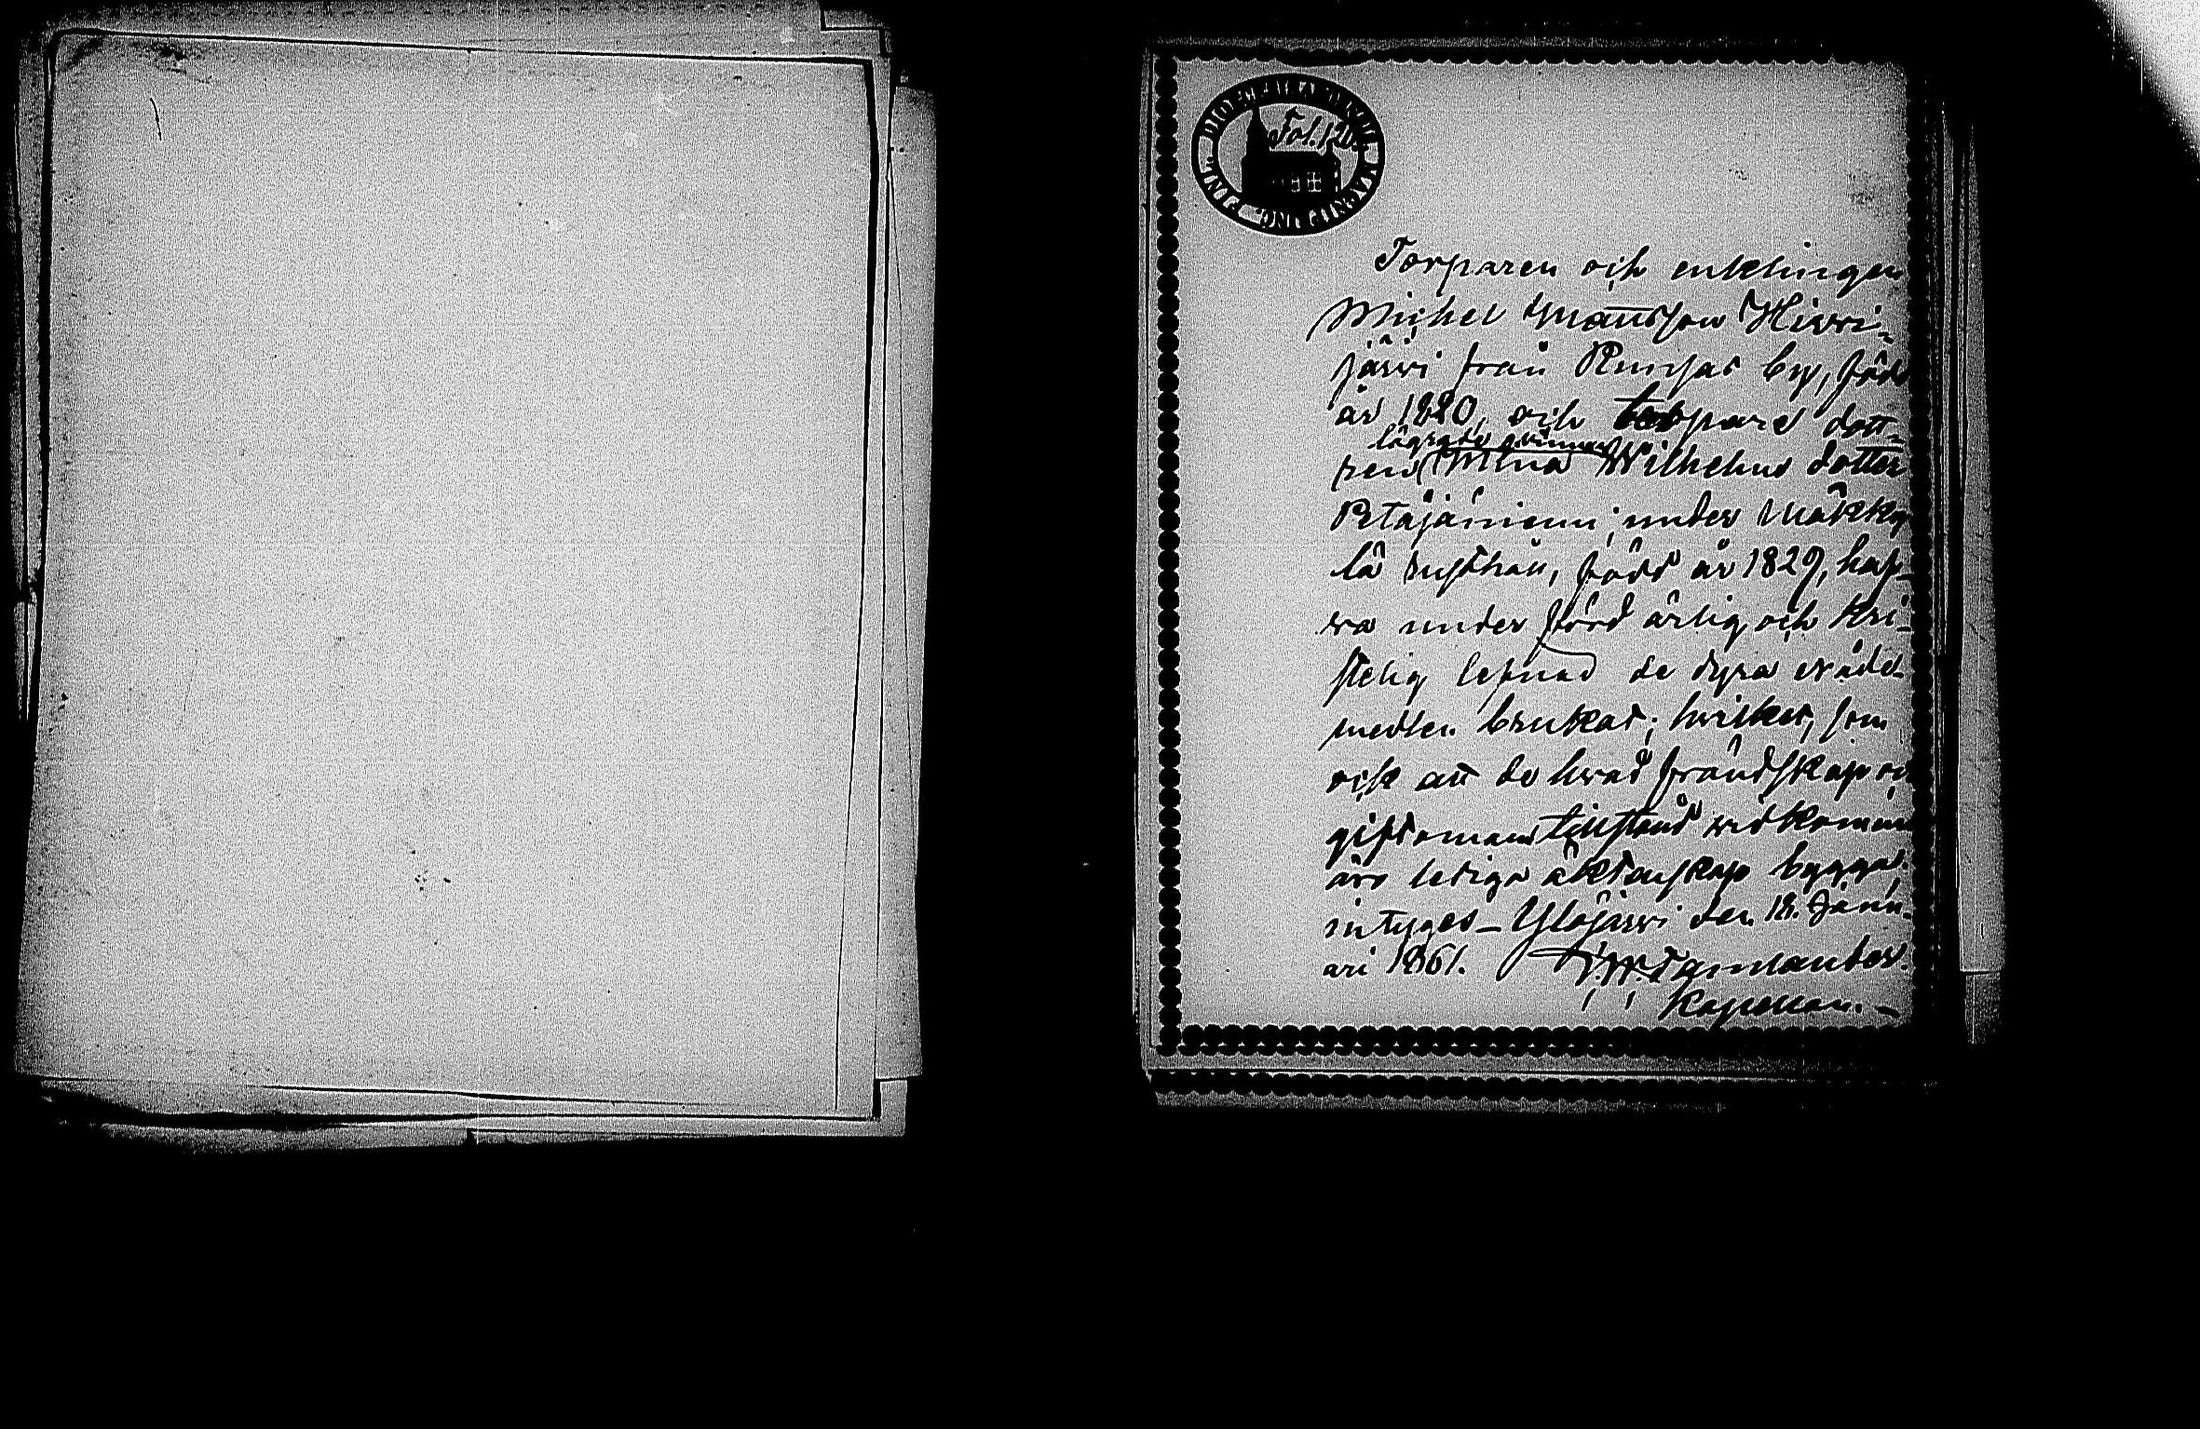 Fol. 120.
Torparen och enklingen
Michel Mattsson Hirvi-
järvi från Runsas by, född
år 1820, och torpare dott-
lägrade qvinnan
ren Mina Wilhelms dotter
Petäjäniemi, under Märkky
lä rusthåll, född år 1829, haf-
va under förd ärlig och kri-
stelig lefnad de dyra nåde-
medlen brukat; hvilket, som
ock att de hvad frändskap oc
giftomans tillstånd vidkommer
äro lediga äktenskap bygga
intygas – Ylöjärvi den 18. Janu-
ari 1861.
Kapellan. –